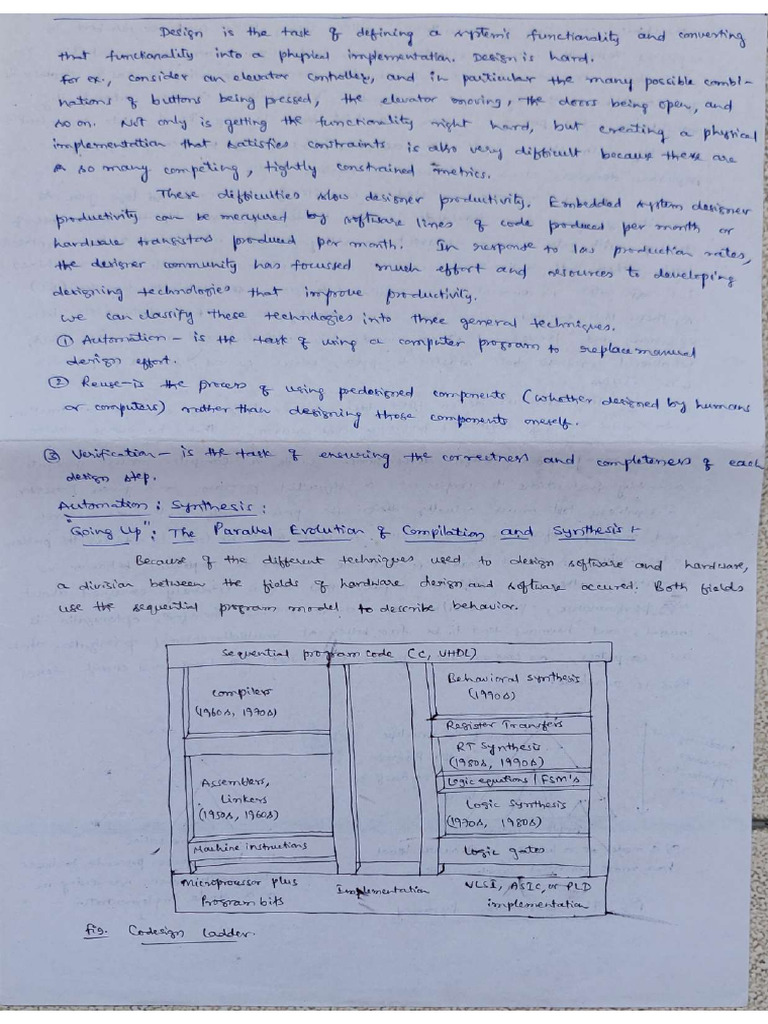 Design is the task of defining a system's functionality and converting
that functionality into a physical implementation. Design is hard.
for ex., consider an elevator controller, and in particular the many possible combi-
nations of buttons being pressed, the elevator moving, the doors being open, and
so on. Not only is getting the functionality right hard, but creating a physical
implementation that satisfies constraints is also very difficult because there are
so many competing, tightly constrained metrics.
These difficulties slow designer productivity. Embedded system designer
productivity can be measured by software lines of code produced per month or
hardware transistors produced per month. In response to low production rates,
the designer community has focussed much effort and resources to developing
designing technologies that improve productivity.
we can classify these technologies into three general techniques.
① Automation - is the task of using a computer program to replace manual
design effort.
② Reuse-is the process of using predesigned components (whether designed by humans
or computers) rather than designing those components oneself.
③ Verification - is the task of ensuring the correctness and completeness of each
design step.
Automation: Synthesis:
"Going Up": The Parallel Evolution of Compilation and Synthesis:-
Because of the different techniques used to design software and hardware,
a division between the fields of hardware design and software occured. Both fields
use the sequential program model to describe behavior.
Sequential program code (C, VHDL)
Compilers
(1960s, 1970s)
Assemblers,
Linkers
(1950s, 1960s)
Machine instructions
Microprossor plus
Program bits
Implementation
Behavioral Synthesis
(1990s)
Register Transfers
RT Synthesis
(1980s, 1990s)
Logic equations / FSM's
Logic Synthesis
(1970s, 1980s)
Logic gates
VLSI, ASIC, or PLD
implementation
fig. Codesign ladder.